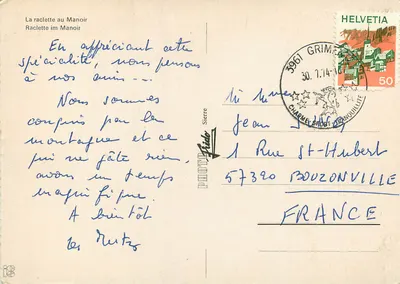 La raclette au Manoir
Raclette im Manoir
En appréciant cette
spécialité, nous pensons
à nos amis....
Nous sommes
conquis par la
montagne et ce
qui ne gâte rien,
avons un temps
magnifique.
A bientôt
les
HELVETIA
50
3961 GRIM
30.7.74-18
PHOTO
Sierre
Jean
1 Rue St-Hubert
57320 BOUZONVILLE
FRANCE